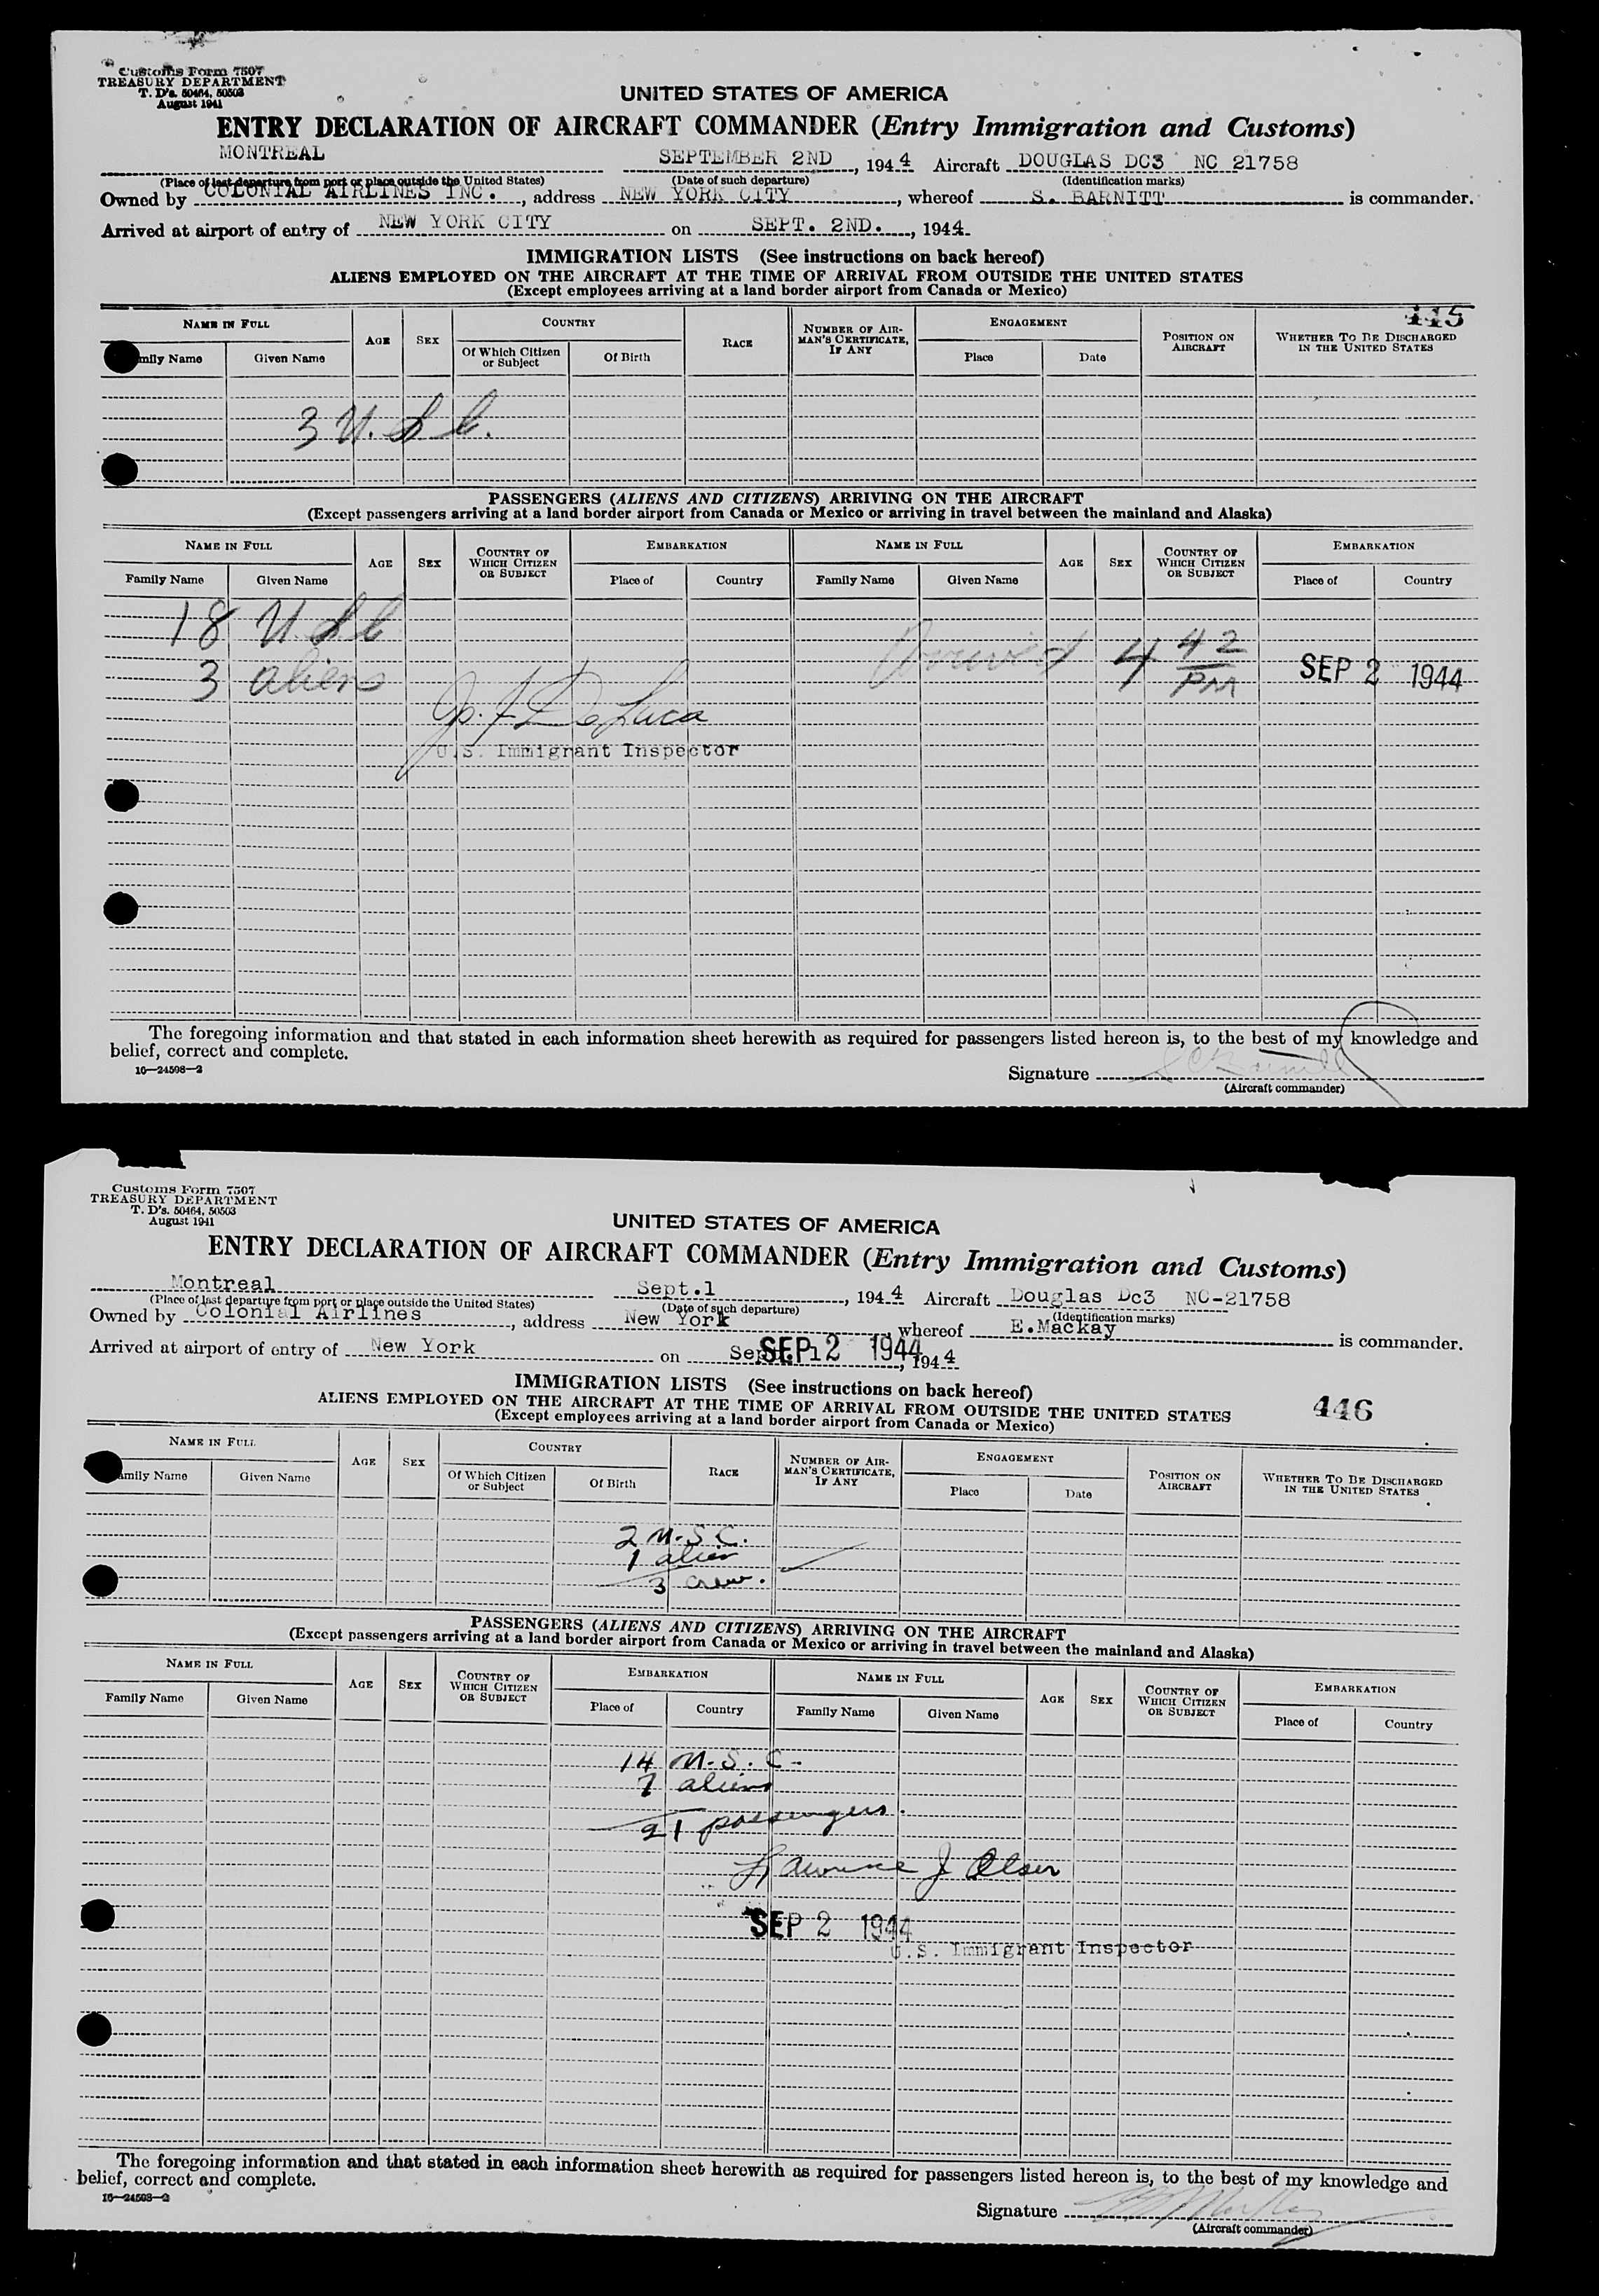 Customs Form 7507
TREASURY DEPARTMENT
T. D's. 50464, 50503
August 1941
UNITED STATES OF AMERICA
ENTRY DECLARATION OF AIRCRAFT COMMANDER (Entry Immigration and Customs)
MONTREAL SEPTEMBER 2ND, 1944 Aircraft DOUGLAS DC3 NC 21758
(Place of last departure from port or place outside the United States) (Date of such departure) (Identification marks)
Owned by COLONIAL AIRLINES INC., address NEW YORK CITY, whereof S. BARNITT is commander.
Arrived at airport of entry of NEW YORK CITY on SEPT. 2ND., 1944.
IMMIGRATION LISTS (See instructions on back hereof)
ALIENS EMPLOYED ON THE AIRCRAFT AT THE TIME OF ARRIVAL FROM OUTSIDE THE UNITED STATES
(Except employees arriving at a land border airport from Canada or Mexico)
445
NAME IN FULL AGE SEX COUNTRY RACE NUMBER OF AIRMAN'S CERTIFICATE, IF ANY ENGAGEMENT POSITION ON AIRCRAFT WHETHER TO BE DISCHARGED IN THE UNITED STATES
mily Name Given Name Of Which Citizen or Subject Of Birth Place Date
3 U. S C.
PASSENGERS (ALIENS AND CITIZENS) ARRIVING ON THE AIRCRAFT
(Except passengers arriving at a land border airport from Canada or Mexico or arriving in travel between the mainland and Alaska)
NAME IN FULL AGE SEX COUNTRY OF WHICH CITIZEN OR SUBJECT EMBARKATION NAME IN FULL AGE SEX COUNTRY OF WHICH CITIZEN OR SUBJECT EMBARKATION
Family Name Given Name Place of Country Family Name Given Name Place of Country
18 U.S.C
3 aliens
Arrived 4 42 PM SEP 2 1944
Jo. F. De Luca
U.S. Immigrant Inspector
The foregoing information and that stated in each information sheet herewith as required for passengers listed hereon is, to the best of my knowledge and
belief, correct and complete.
16—24598—2
Signature
(Aircraft commander)
Customs Form 7507
TREASURY DEPARTMENT
T. D's. 50464, 50503
August 1941
UNITED STATES OF AMERICA
ENTRY DECLARATION OF AIRCRAFT COMMANDER (Entry Immigration and Customs)
Montreal Sept.1, 1944 Aircraft Douglas Dc3 NC-21758
(Place of last departure from port or place outside the United States) (Date of such departure) (Identification marks)
Owned by Colonial Airlines, address New York, whereof E.Mackay is commander.
Arrived at airport of entry of New York on Sept. 1 SEP 2 1944, 1944
IMMIGRATION LISTS (See instructions on back hereof)
ALIENS EMPLOYED ON THE AIRCRAFT AT THE TIME OF ARRIVAL FROM OUTSIDE THE UNITED STATES
(Except employees arriving at a land border airport from Canada or Mexico)
446
NAME IN FULL AGE SEX COUNTRY RACE NUMBER OF AIRMAN'S CERTIFICATE, IF ANY ENGAGEMENT POSITION ON AIRCRAFT WHETHER TO BE DISCHARGED IN THE UNITED STATES
amily Name Given Name Of Which Citizen or Subject Of Birth Place Date
2 U.S.C.
1 alien
3 crew.
PASSENGERS (ALIENS AND CITIZENS) ARRIVING ON THE AIRCRAFT
(Except passengers arriving at a land border airport from Canada or Mexico or arriving in travel between the mainland and Alaska)
NAME IN FULL AGE SEX COUNTRY OF WHICH CITIZEN OR SUBJECT EMBARKATION NAME IN FULL AGE SEX COUNTRY OF WHICH CITIZEN OR SUBJECT EMBARKATION
Family Name Given Name Place of Country Family Name Given Name Place of Country
14 U.S.C.
7 aliens
21 passengers.
Lawrence J Olsen
SEP 2 1944
U.S. Immigrant Inspector
The foregoing information and that stated in each information sheet herewith as required for passengers listed hereon is, to the best of my knowledge and
belief, correct and complete.
16—24598—2
Signature
(Aircraft commander)